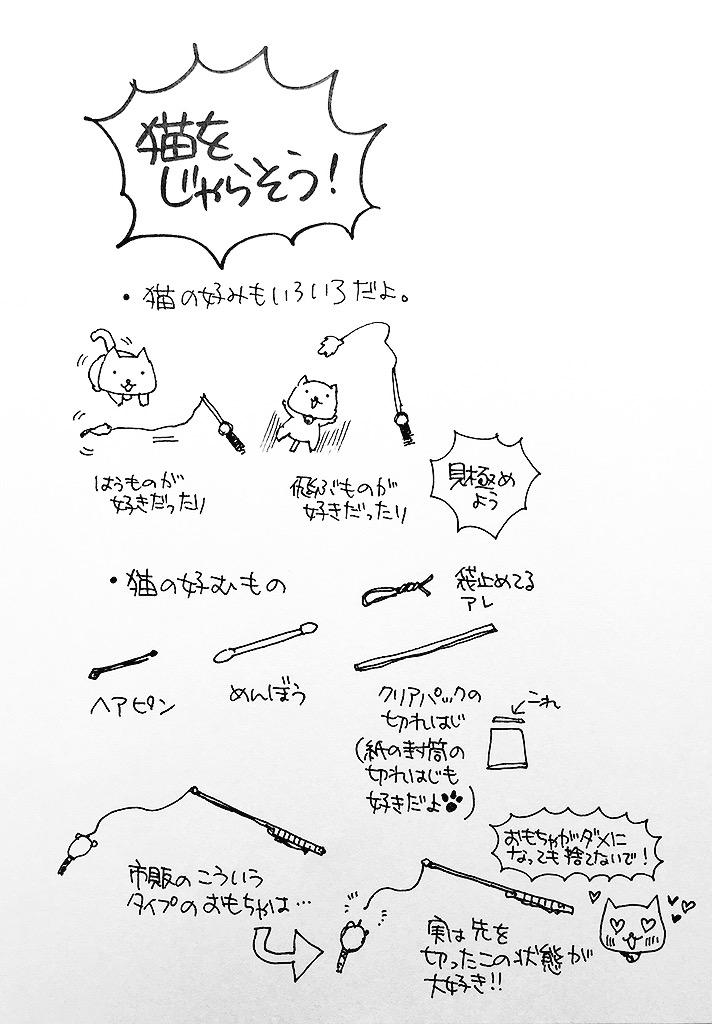 猫を
じゃらそう!
・猫の好みもいろいろだよ。
はうものが
好きだったり
飛ぶものが
好きだったり
見極め
よう
・猫の好むもの
袋止めてる
アレ
ヘアピン
めんぼう
クリアパックの
切れはじ
(紙の封筒の
切れはじも
好きだよ)
これ
市販のこういう
タイプのおもちゃは…
おもちゃがダメに
なっても捨てないで!
実は先を
切ったこの状態が
大好き!!